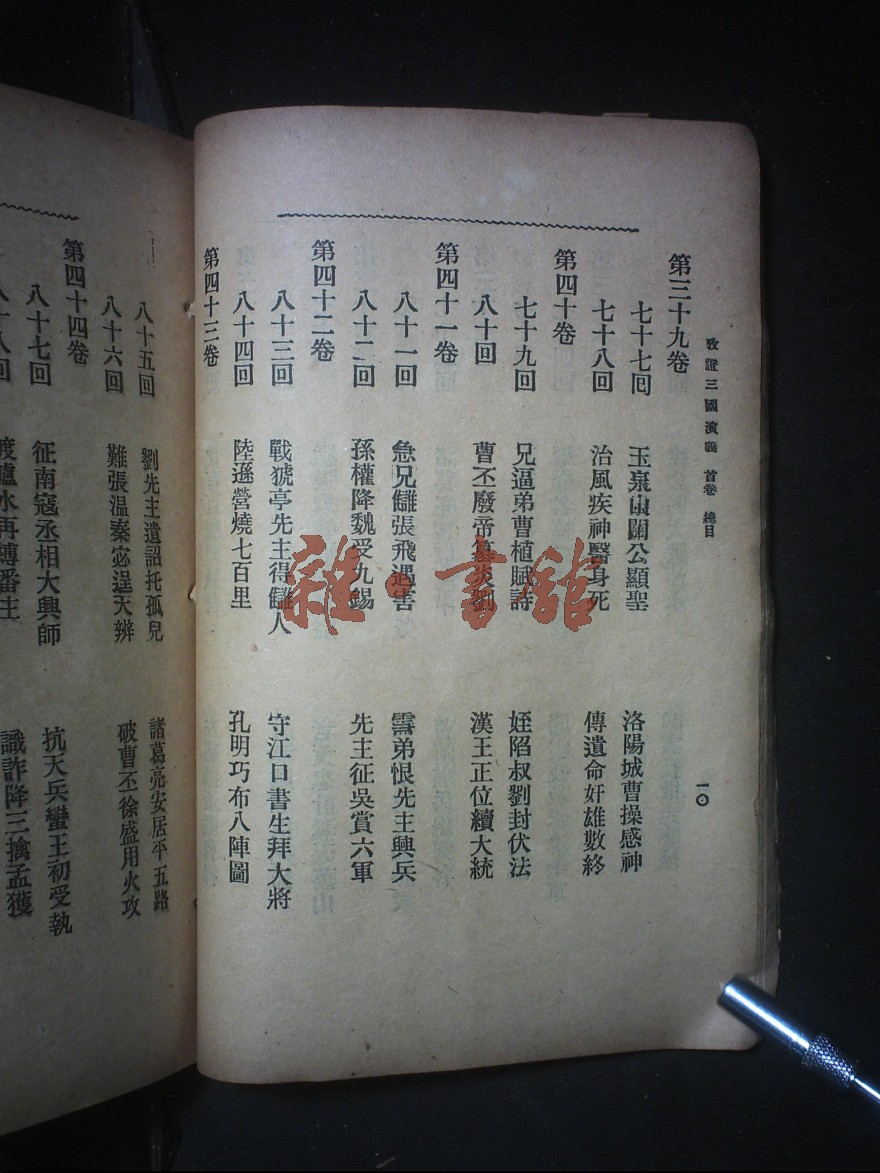 攷證三國演義 首卷 總目
一〇
第三十九卷
七十七回 玉泉山關公顯聖 洛陽城曹操感神
七十八回 治風疾神醫身死 傳遺命奸雄數終
第四十卷
七十九回 兄逼弟曹植賦詩 姪陷叔劉封伏法
八十回 曹丕廢帝篡炎劉 漢王正位續大統
第四十一卷
八十一回 急兄讎張飛遇害 雪弟恨先主興兵
八十二回 孫權降魏受九錫 先主征吳賞六軍
第四十二卷
八十三回 戰猇亭先主得讎人 守江口書生拜大將
八十四回 陸遜營燒七百里 孔明巧布八陣圖
第四十三卷
八十五回 劉先主遺詔托孤兒 諸葛亮安居平五路
八十六回 難張温秦宓逞天辨 破曹丕徐盛用火攻
第四十四卷
八十七回 征南寇丞相大興師 抗天兵蠻王初受執
八十八回 渡瀘水再縛番主 識詐降三擒孟獲
雜·書館